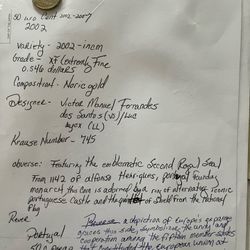 50 uro Cent 2002-2007
2002
Variety - 2002-incm
Grade - XF Extremly Fine
0.546 dollars
Composition - Nordic gold
Designer - Victor Manuel Fernandes
dos Santos (VS)/Luc
Luycx (LL)
Krause Number - 745
obverse: Featuring the emblematic Second Royal Seal
From 1142 of alfonso Henriques, founding
monarch this Coin is adorned by a ring of alternating
portuguese Castle and the of Shield From the National
Flag
Portugal
a depiction of Europe's expanse
graces this side, symbolizing the unity and
cooperation among the fifteen member states
that constituted the european union at